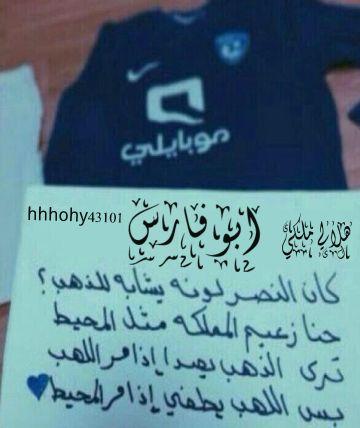 موبايلي
hhhohy43101
ابو فارس
هلالي ملكي
كان النصر لونه يشابه للذهب؟
حنا زعيم المملكه مثل المحيط
ترى الذهب يصدا إذا مر اللهب
بس اللهب يطفي إذا مر المحيط